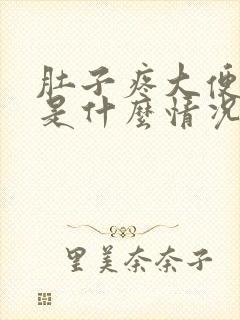 肚子疼大便
是什麼情况
里美奈奈子